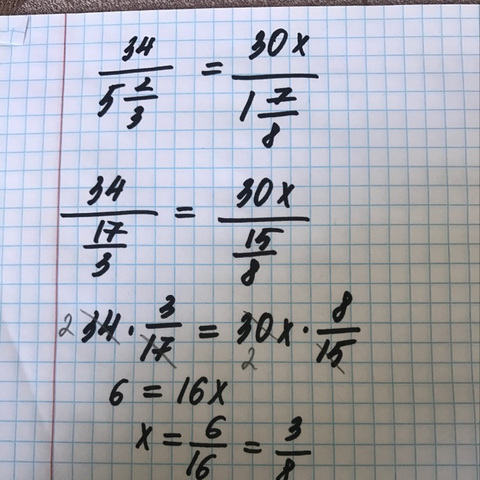 34/5 2/3 = 30x/1 7/8
34/17/3 = 30x/15/8
2 34 · 3/17 = 30x · 8/15
2
6 = 16x
x = 6/16 = 3/8